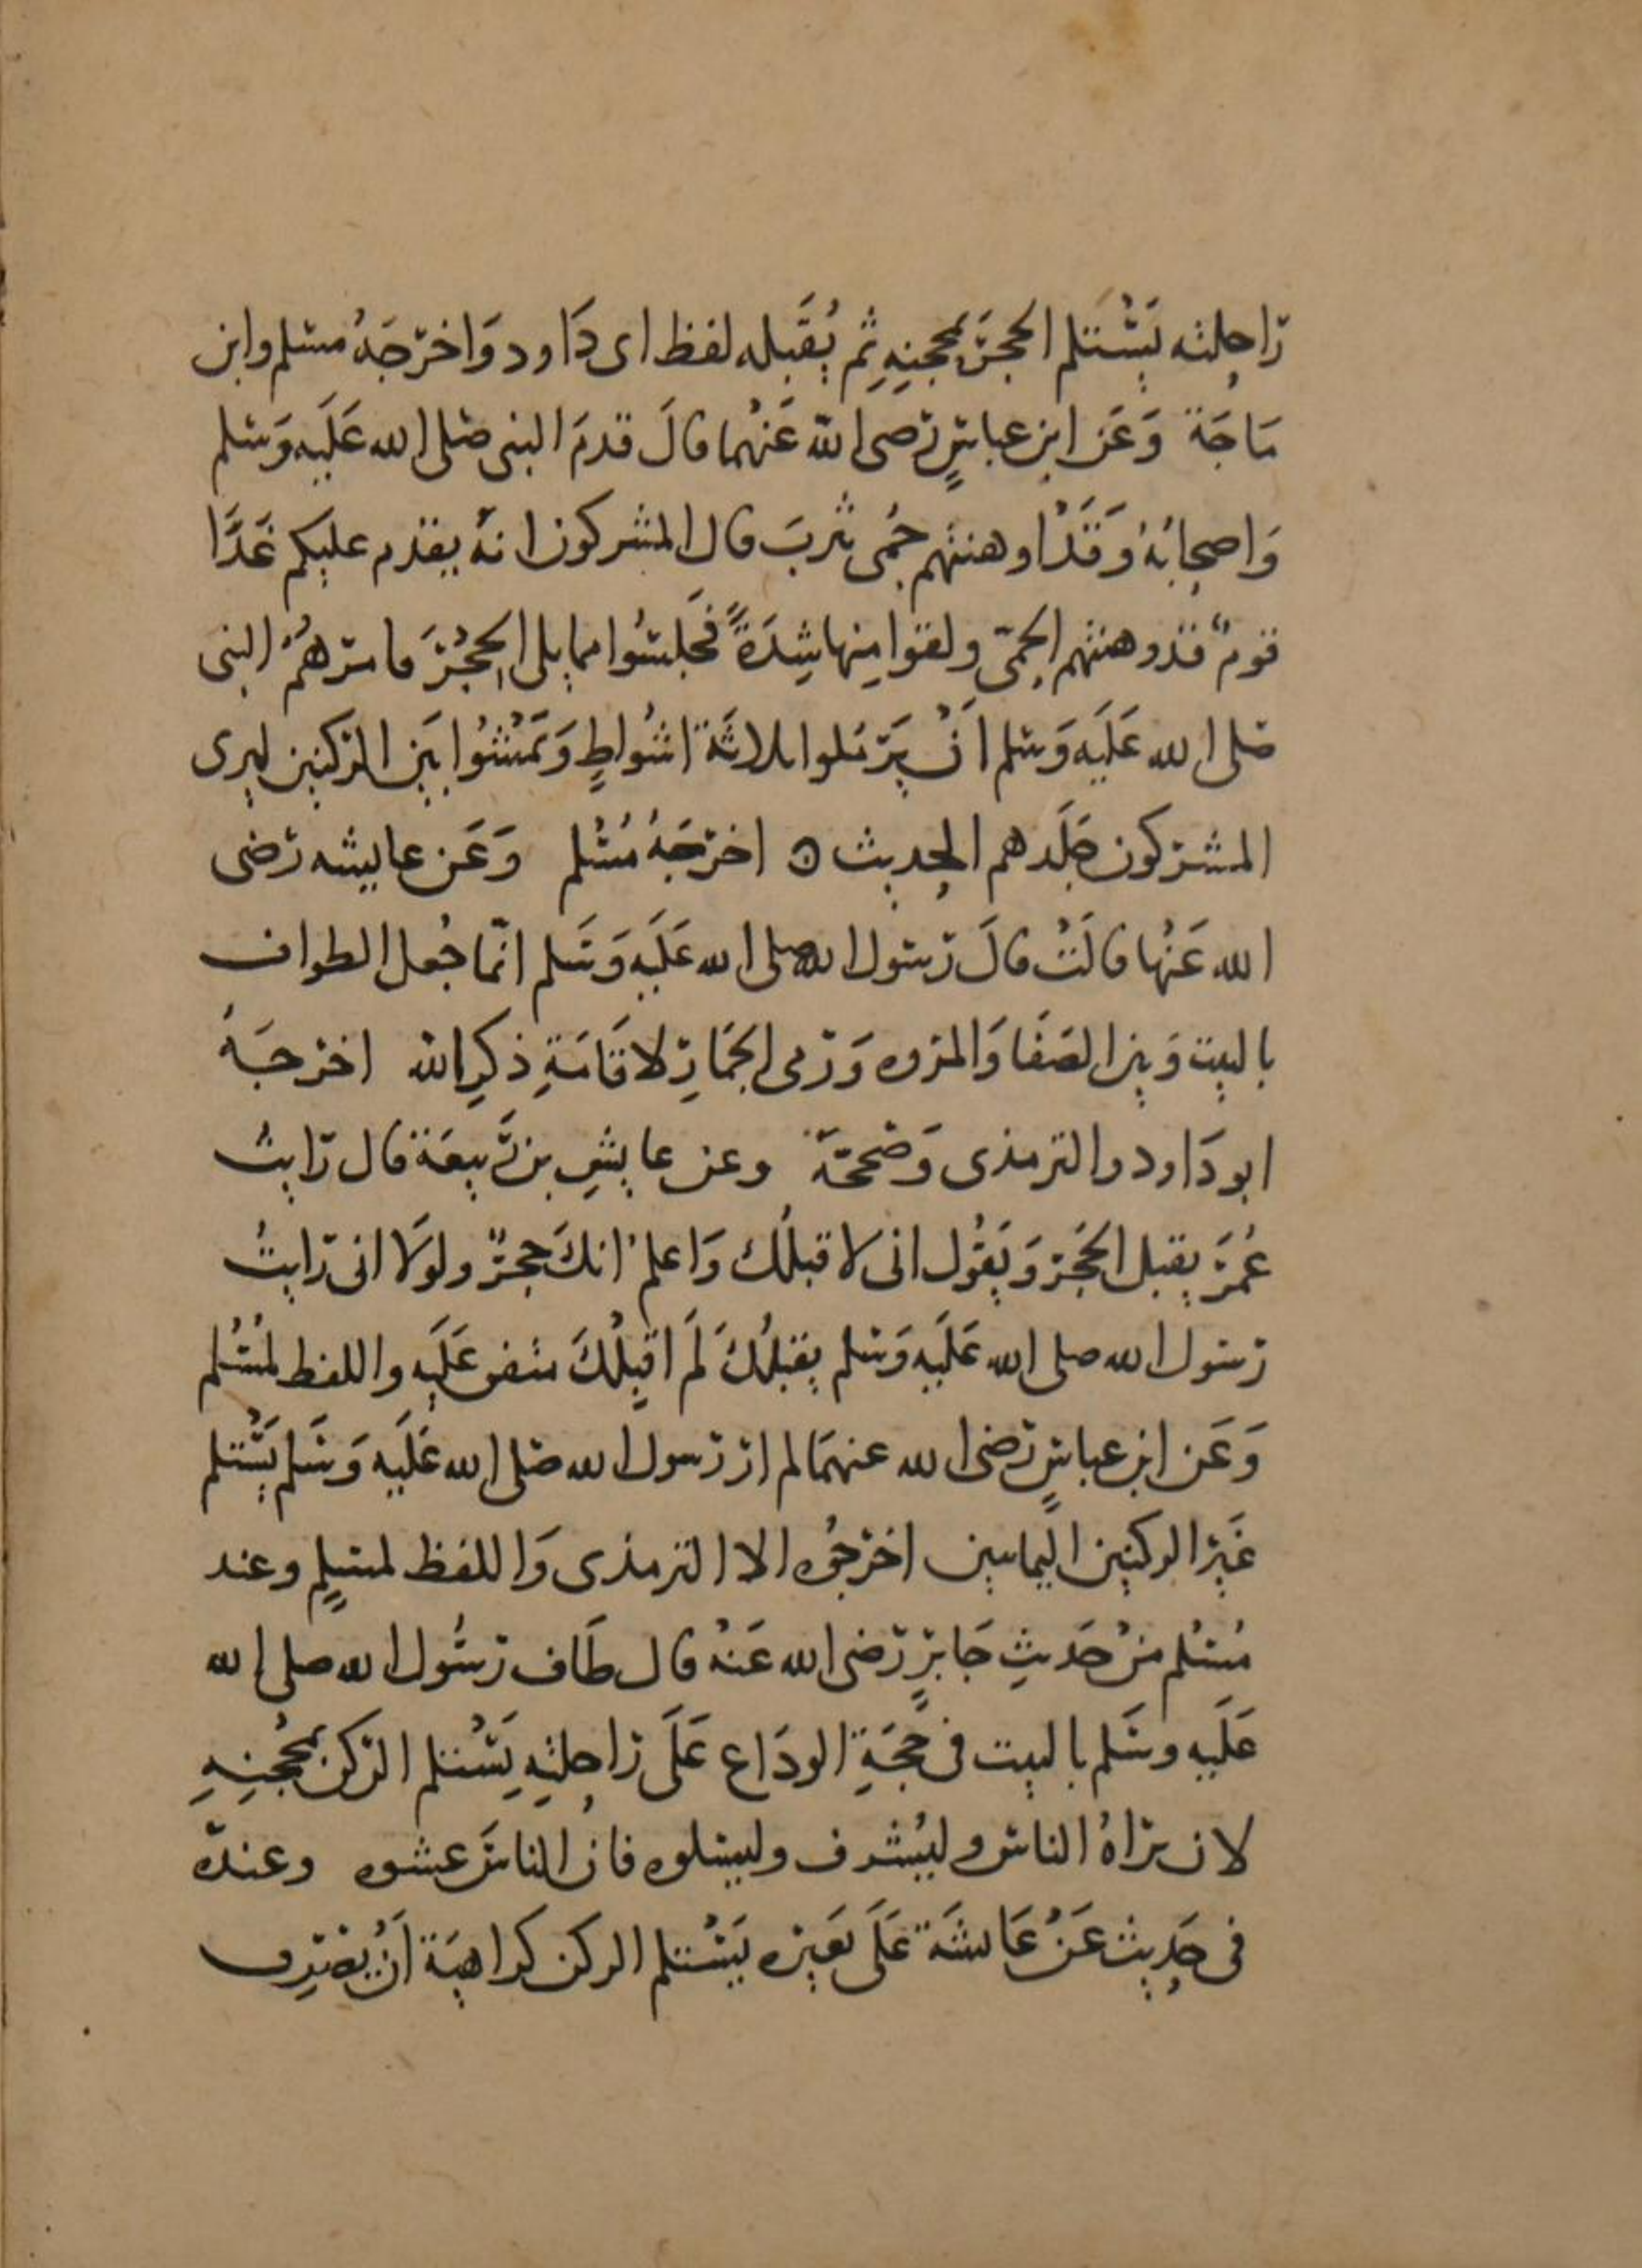 رَاحِلته يَسْتَلم الحجرَ بمحجنِهِ ثم يُقَبّله لفظ ابى دَاود وَاخرَجَهُ مسلم وابن
مَاجَة وَعَن ابن عباسٍ رضى الله عَنْهما قالَ قدمَ النبى صَلى الله عَلَيه وَسَلم
وَاصحابُهُ وَقَدْ اوهنتهم حُمى يثربَ قال المشركون انهُ يقدم عليكم غَدًا
قومٌ قد وهنتهم الحمّى ولقوا مِنها شِدَةً فَجلسُوا مما يلى الحجْرَ فامرَهُمْ النبى
صَلى الله عَلَيه وَسَلم اَنْ يَرْمَلوا ثلاثَة اشوَاطٍ وَيَمْشُوا بَين الركنين ليرى
المشركون جَلَدهم الحديث ه اخرَجَهُ مُسْلم وَعَن عايشه رَضى
الله عَنْها قالَتْ قالَ رَسول الله صلى الله عَلَيه وَسَلم انّما جُعل الطواف
بالبيت وَبين الصَفَا وَالمَروه وَرَمى الجمَارِ لاقَامَةِ ذكرِ الله اخرجَهُ
ابو دَاود والترمذى وَصَححَهُ وعن عابِسِ بن رَبيعَة قال رَايتُ
عُمرَ يقبل الحجَر وَيَقُول انى لاقبلُك وَاعلم انكَ حجرٌ ولولَا انى رَايتُ
رَسول الله صلى الله عَلَيه وَسَلم يقبّلُكَ لَم اقبّلْكَ متفق عَلَيه واللفظ لمُسْلم
وَعَن ابن عباسٍ رَضى الله عنهمَا لم ار رَسول الله صَلى الله عَلَيه وَسَلم يَسْتَلم
غَيْرَ الركنين اليمانيين اخرجُوه الا الترمذى وَاللفظ لمسلِمٍ وعند
مُسْلم منْ حَديثِ جَابرٍ رَضى الله عَنْهُ قال طَاف رَسُول الله صلى الله
عَلَيه وسَلم بالبيت فى حجَةِ الودَاع عَلَى رَاحلتِهِ يَسْتلم الركن بمحْجنِهِ
لان يرَاهُ الناس وليُشرف وليسَلوه فانُ الناسَ غشوه وعندَه
فى حَديث عَنْ عَائشَة عَلَى بَعيرِه يَسْتلم الركن كراهيَة اَنْ يُضْرِبَ